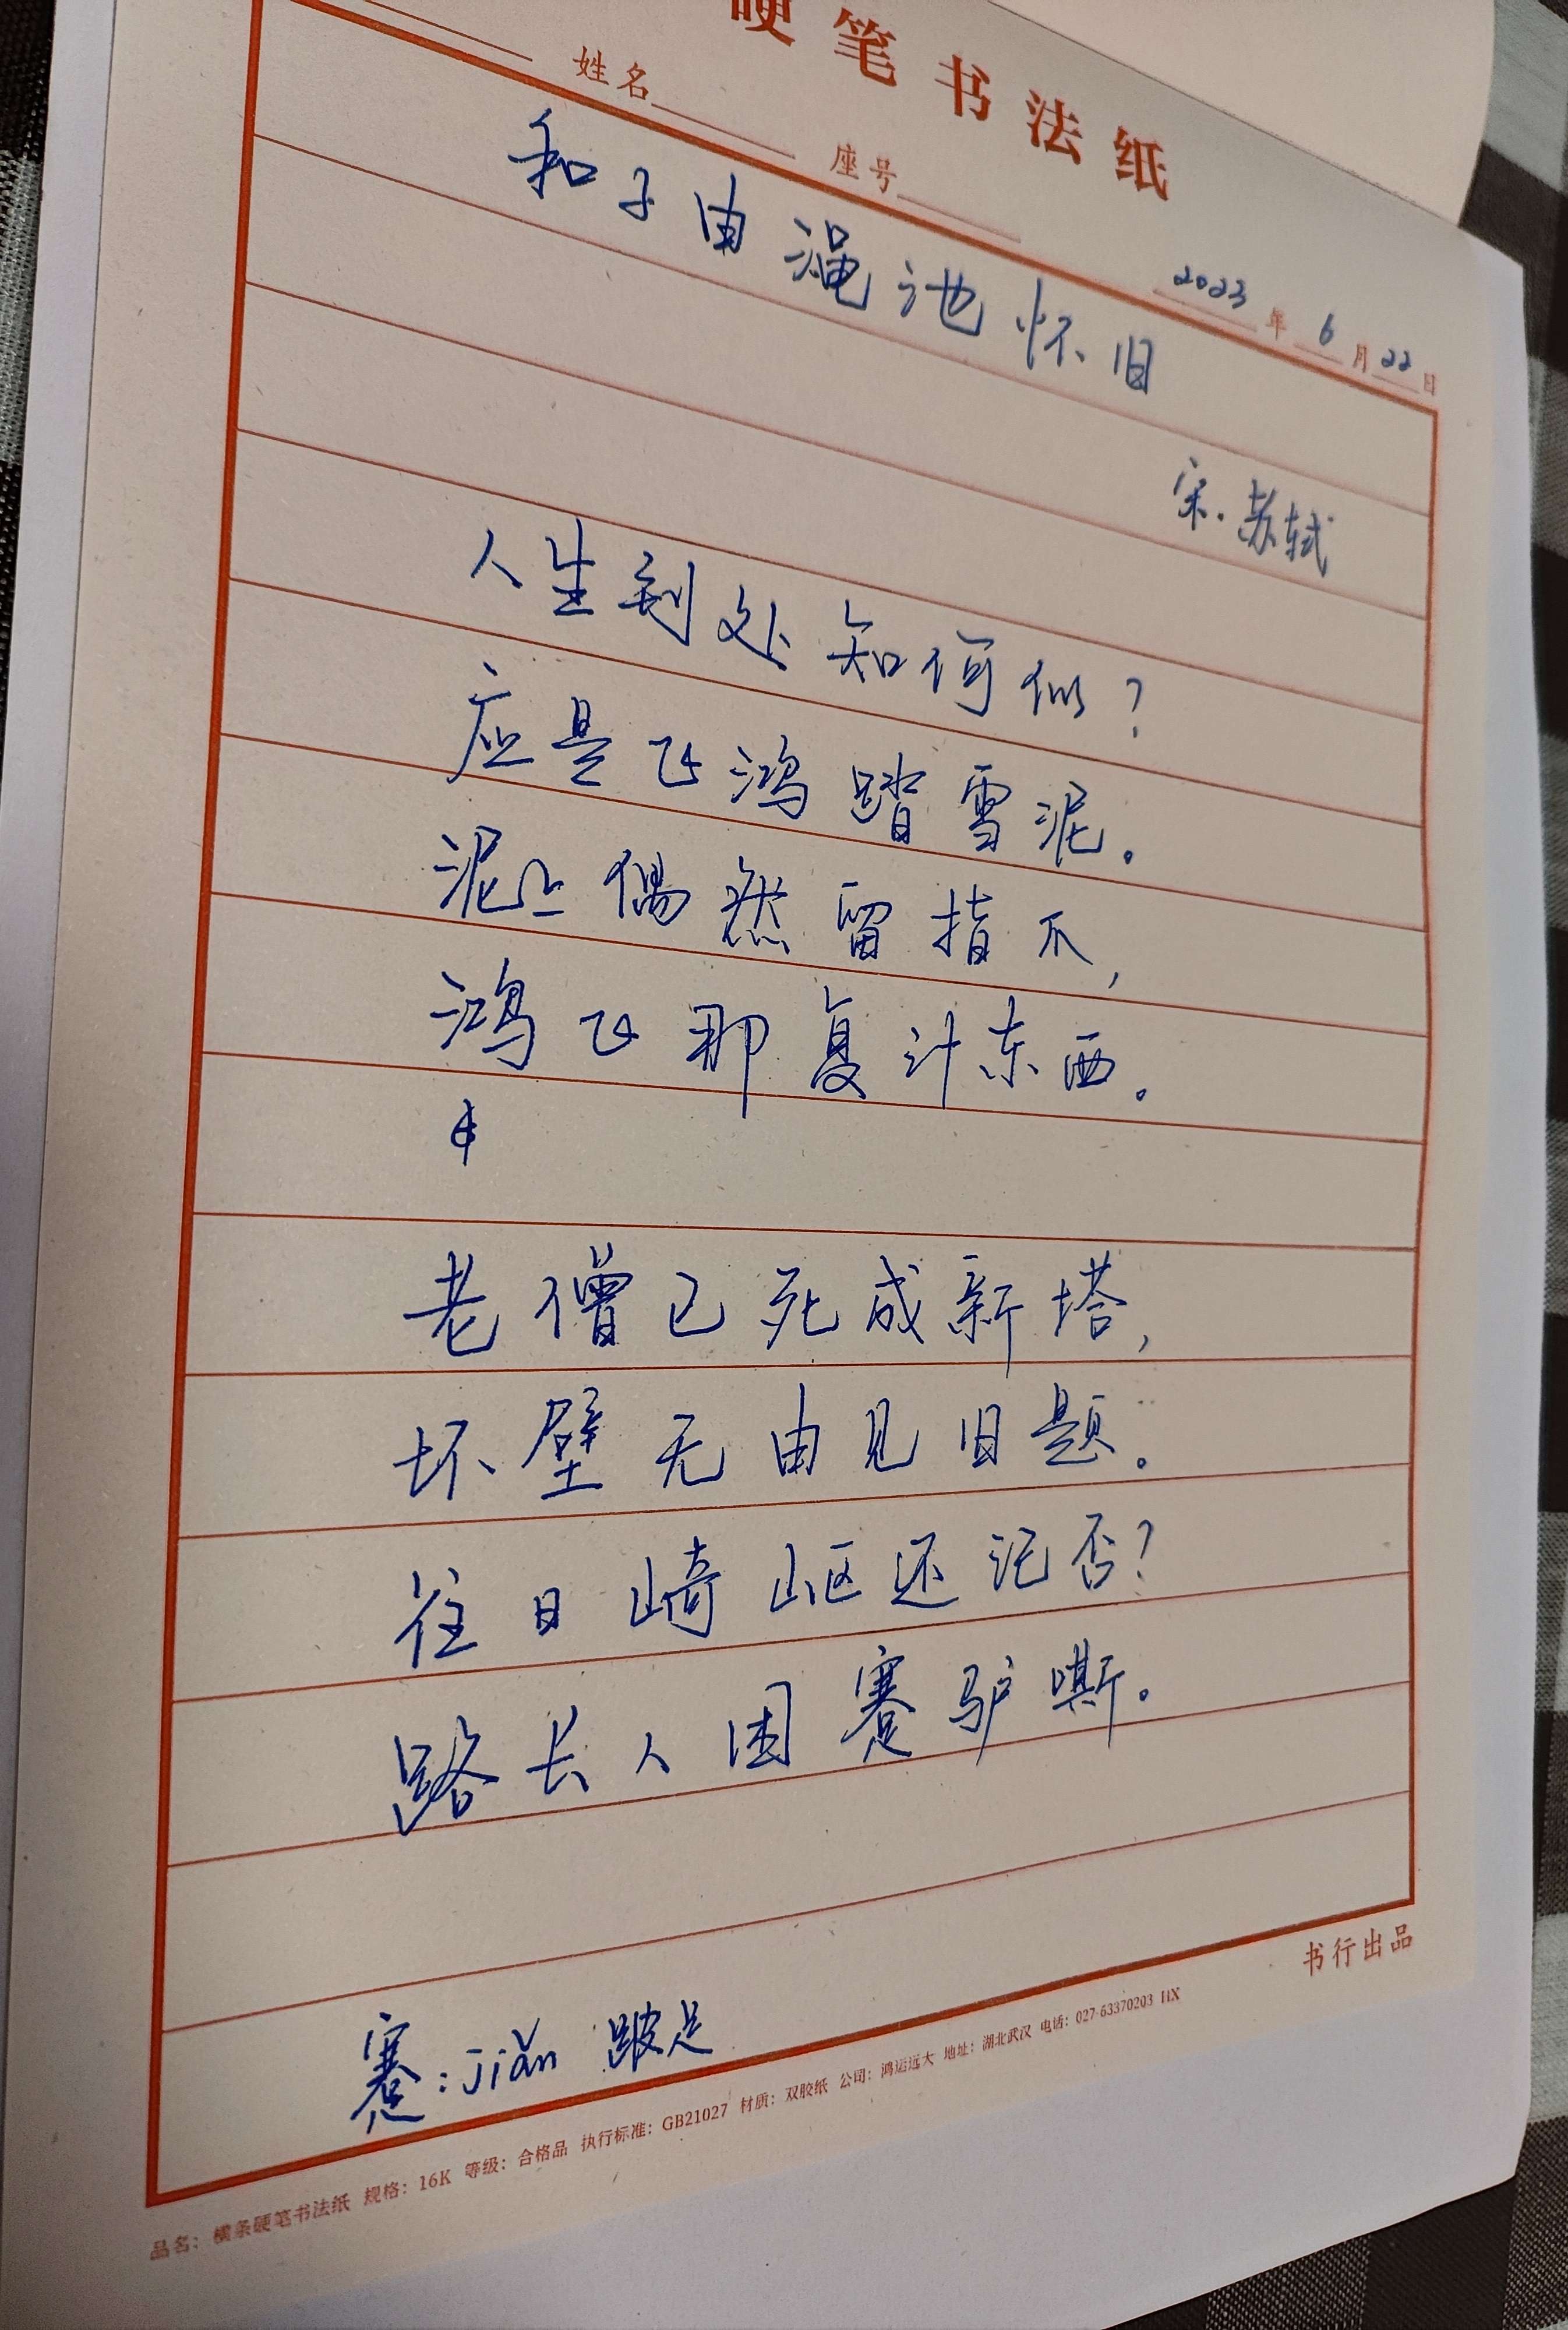 硬笔书法纸
姓名 座号
2023年6月22日
和子由渑池怀旧
宋·苏轼
人生到处知何似？
应是飞鸿踏雪泥。
泥上偶然留指爪，
鸿飞那复计东西。
老僧已死成新塔，
坏壁无由见旧题。
往日崎岖还记否？
路长人困蹇驴嘶。
蹇：jiǎn 跛足
书行出品
品名：横条硬笔书法纸 规格：16K 等级：合格品 执行标准：GB21027 材质：双胶纸 公司：鸿运远大 地址：湖北武汉 电话：027-63370203 HX